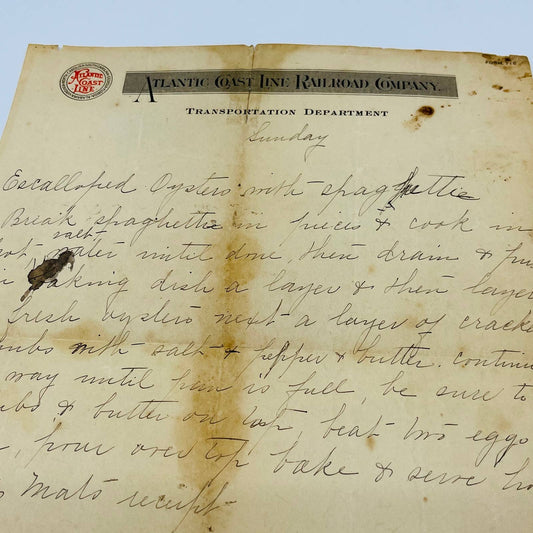 FORM
ATLANTIC COAST LINE
ATLANTIC COAST LINE RAILROAD COMPANY.
TRANSPORTATION DEPARTMENT
Sunday
Escalloped Oysters with spaghettie
Break spaghettie in pieces & cook in
hot salt water until done, then drain &
baking dish a layer & then layer
fresh oysters next a layer of cracke
mbs with salt & pepper & butter. continu
way until pan is full, be sure to
mbs & butter on top, beat two eggs
pour over top bake & serve ho
receipt